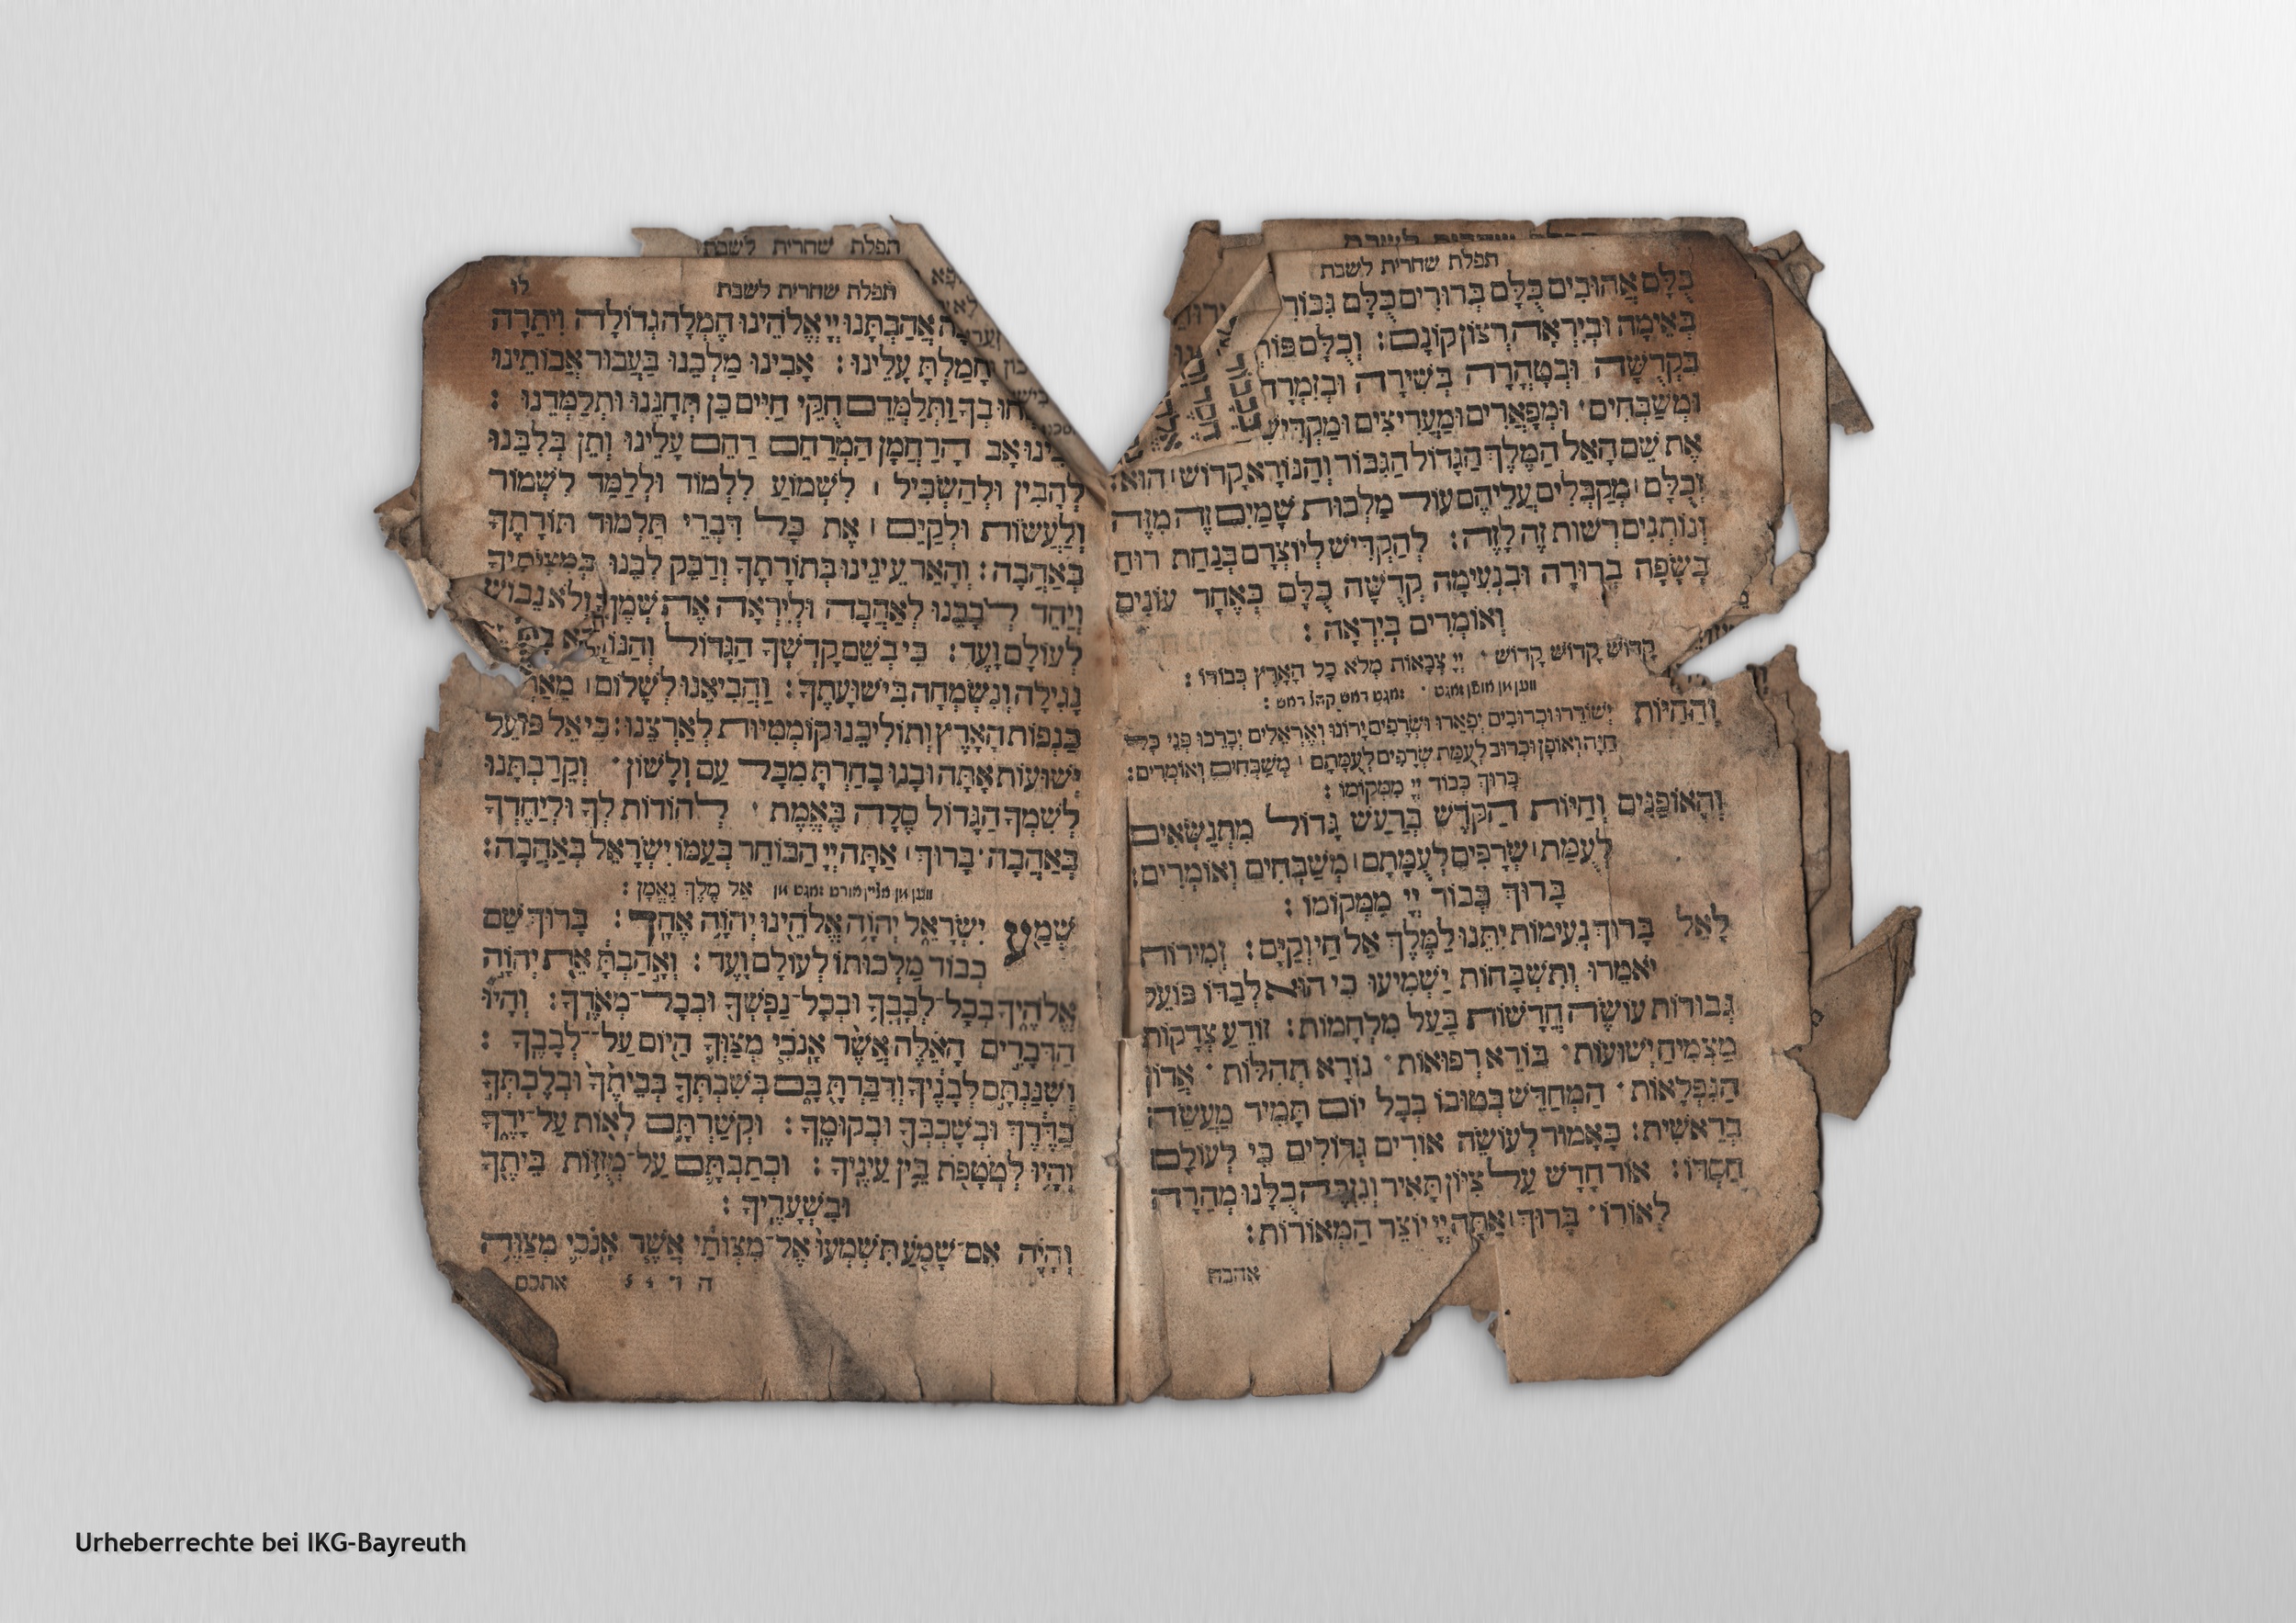 תפלת שחרית לשבת
כֻּלָּם אֲהוּבִים כֻּלָּם בְּרוּרִים כֻּלָּם גִּבּוֹרִ
בְּאֵימָה וּבְיִרְאָה רְצוֹן קוֹנָם: וְכֻלָּם פּוֹתְ
בִּקְדֻשָּׁה וּבְטָהֳרָה בְּשִׁירָה וּבְזִמְרָה
וּמְשַׁבְּחִים· וּמְפָאֲרִים וּמַעֲרִיצִים וּמַקְדִּישִׁ
אֶת שֵׁם הָאֵל הַמֶּלֶךְ הַגָּדוֹל הַגִּבּוֹר וְהַנּוֹרָא קָדוֹשׁ הוּא:
וְכֻלָּם מְקַבְּלִים עֲלֵיהֶם עוֹל מַלְכוּת שָׁמַיִם זֶה מִזֶּה
וְנוֹתְנִים רְשׁוּת זֶה לָזֶה: לְהַקְדִּישׁ לְיוֹצְרָם בְּנַחַת רוּחַ
בְּשָׂפָה בְרוּרָה וּבִנְעִימָה קְדֻשָּׁה כֻּלָּם כְּאֶחָד עוֹנִים
וְאוֹמְרִים בְּיִרְאָה:
קָדוֹשׁ קָדוֹשׁ קָדוֹשׁ · יְיָ צְבָאוֹת מְלֹא כָל הָאָרֶץ כְּבוֹדוֹ:
וְהַחַיּוֹת יְשׁוֹרֵרוּ וּכְרוּבִים יְפָאֵרוּ וּשְׂרָפִים יָרוֹנוּ וְאֶרְאֵלִים יְבָרֵכוּ פְּנֵי כָּל
חַיָּה וְאוֹפָן וּכְרוּב לְעֻמַּת שְׂרָפִים לְעֻמָּתָם מְשַׁבְּחִים וְאוֹמְרִים:
בָּרוּךְ כְּבוֹד יְיָ מִמְּקוֹמוֹ:
וְהָאוֹפַנִּים וְחַיּוֹת הַקֹּדֶשׁ בְּרַעַשׁ גָּדוֹל מִתְנַשְּׂאִים
לְעֻמַּת שְׂרָפִים לְעֻמָּתָם מְשַׁבְּחִים וְאוֹמְרִים:
בָּרוּךְ כְּבוֹד יְיָ מִמְּקוֹמוֹ:
לָאֵל בָּרוּךְ נְעִימוֹת יִתֵּנוּ לַמֶּלֶךְ אֵל חַי וְקַיָּם: זְמִירוֹת
יֹאמֵרוּ וְתִשְׁבָּחוֹת יַשְׁמִיעוּ כִּי הוּא לְבַדּוֹ פּוֹעֵל
גְּבוּרוֹת עוֹשֶׂה חֲדָשׁוֹת בַּעַל מִלְחָמוֹת: זוֹרֵעַ צְדָקוֹת
מַצְמִיחַ יְשׁוּעוֹת· בּוֹרֵא רְפוּאוֹת· נוֹרָא תְהִלּוֹת· אֲדוֹן
הַנִּפְלָאוֹת· הַמְחַדֵּשׁ בְּטוּבוֹ בְּכָל יוֹם תָּמִיד מַעֲשֵׂה
בְרֵאשִׁית: כָּאָמוּר לְעוֹשֵׂה אוֹרִים גְּדוֹלִים כִּי לְעוֹלָם
חַסְדּוֹ: אוֹר חָדָשׁ עַל צִיּוֹן תָּאִיר וְנִזְכֶּה כֻלָּנוּ מְהֵרָה
לְאוֹרוֹ· בָּרוּךְ אַתָּה יְיָ יוֹצֵר הַמְּאוֹרוֹת:
אהבה
תפלת שחרית לשבת
תפלת שחרית לשבת לו
ה אֲהַבְתָּנוּ יְיָ אֱלֹהֵינוּ חֶמְלָה גְדוֹלָה וִיתֵרָה
חָמַלְתָּ עָלֵינוּ: אָבִינוּ מַלְכֵּנוּ בַּעֲבוּר אֲבוֹתֵינוּ
חוּ בְךָ וַתְּלַמְּדֵם חֻקֵּי חַיִּים כֵּן תְּחָנֵּנוּ וּתְלַמְּדֵנוּ:
ינוּ אָב הָרַחֲמָן הַמְרַחֵם רַחֵם עָלֵינוּ וְתֵן בְּלִבֵּנוּ
לְהָבִין וּלְהַשְׂכִּיל לִשְׁמוֹעַ לִלְמוֹד וּלְלַמֵּד לִשְׁמוֹר
וְלַעֲשׂוֹת וּלְקַיֵּם אֶת כָּל דִּבְרֵי תַלְמוּד תּוֹרָתֶךָ
בְּאַהֲבָה: וְהָאֵר עֵינֵינוּ בְּתוֹרָתֶךָ וְדַבֵּק לִבֵּנוּ בְּמִצְוֹתֶיךָ
וְיַחֵד לְבָבֵנוּ לְאַהֲבָה וּלְיִרְאָה אֶת שְׁמֶךָ וְלֹא נֵבוֹשׁ
לְעוֹלָם וָעֶד: כִּי בְשֵׁם קָדְשְׁךָ הַגָּדוֹל וְהַנּוֹרָא
נָגִילָה וְנִשְׂמְחָה בִּישׁוּעָתֶךָ: וַהֲבִיאֵנוּ לְשָׁלוֹם מֵאַרְ
כַּנְפוֹת הָאָרֶץ וְתוֹלִיכֵנוּ קוֹמְמִיּוּת לְאַרְצֵנוּ: כִּי אֵל פּוֹעֵל
יְשׁוּעוֹת אָתָּה וּבָנוּ בָחַרְתָּ מִכָּל עַם וְלָשׁוֹן· וְקֵרַבְתָּנוּ
לְשִׁמְךָ הַגָּדוֹל סֶלָה בֶּאֱמֶת · לְהוֹדוֹת לְךָ וּלְיַחֶדְךָ
בְּאַהֲבָה· בָּרוּךְ אַתָּה יְיָ הַבּוֹחֵר בְּעַמּוֹ יִשְׂרָאֵל בְּאַהֲבָה:
אֵל מֶלֶךְ נֶאֱמָן:
שְׁמַע יִשְׂרָאֵל יְהֹוָה אֱלֹהֵינוּ יְהֹוָה אֶחָד: בָּרוּךְ שֵׁם
כְּבוֹד מַלְכוּתוֹ לְעוֹלָם וָעֶד: וְאָהַבְתָּ אֵת יְהֹוָה
אֱלֹהֶיךָ בְּכָל־לְבָבְךָ וּבְכָל־נַפְשְׁךָ וּבְכָל־מְאֹדֶךָ: וְהָיוּ
הַדְּבָרִים הָאֵלֶּה אֲשֶׁר אָנֹכִי מְצַוְּךָ הַיּוֹם עַל־לְבָבֶךָ:
וְשִׁנַּנְתָּם לְבָנֶיךָ וְדִבַּרְתָּ בָּם בְּשִׁבְתְּךָ בְּבֵיתֶךָ וּבְלֶכְתְּךָ
בַדֶּרֶךְ וּבְשָׁכְבְּךָ וּבְקוּמֶךָ: וּקְשַׁרְתָּם לְאוֹת עַל־יָדֶךָ
וְהָיוּ לְטֹטָפֹת בֵּין עֵינֶיךָ: וּכְתַבְתָּם עַל־מְזֻזוֹת בֵּיתֶךָ
וּבִשְׁעָרֶיךָ:
וְהָיָה אִם־שָׁמֹעַ תִּשְׁמְעוּ אֶל־מִצְוֹתַי אֲשֶׁר אָנֹכִי מְצַוֶּה
אתכם
Urheberrechte bei IKG-Bayreuth